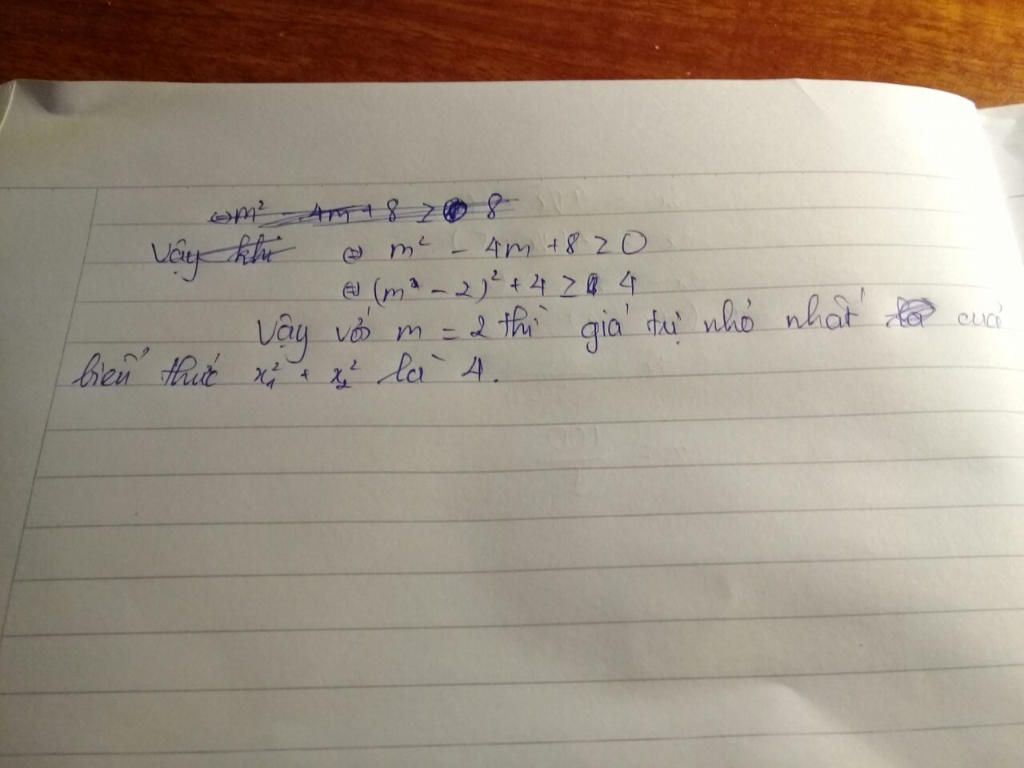 ⇔ m² - 4m + 8 ≥ 8
Vậy khi ⇔ m² - 4m + 8 ≥ 0
⇔ (m - 2)² + 4 ≥ 4
Vậy với m = 2 thì giá trị nhỏ nhất của
biểu thức x₁² + x₂² là 4.